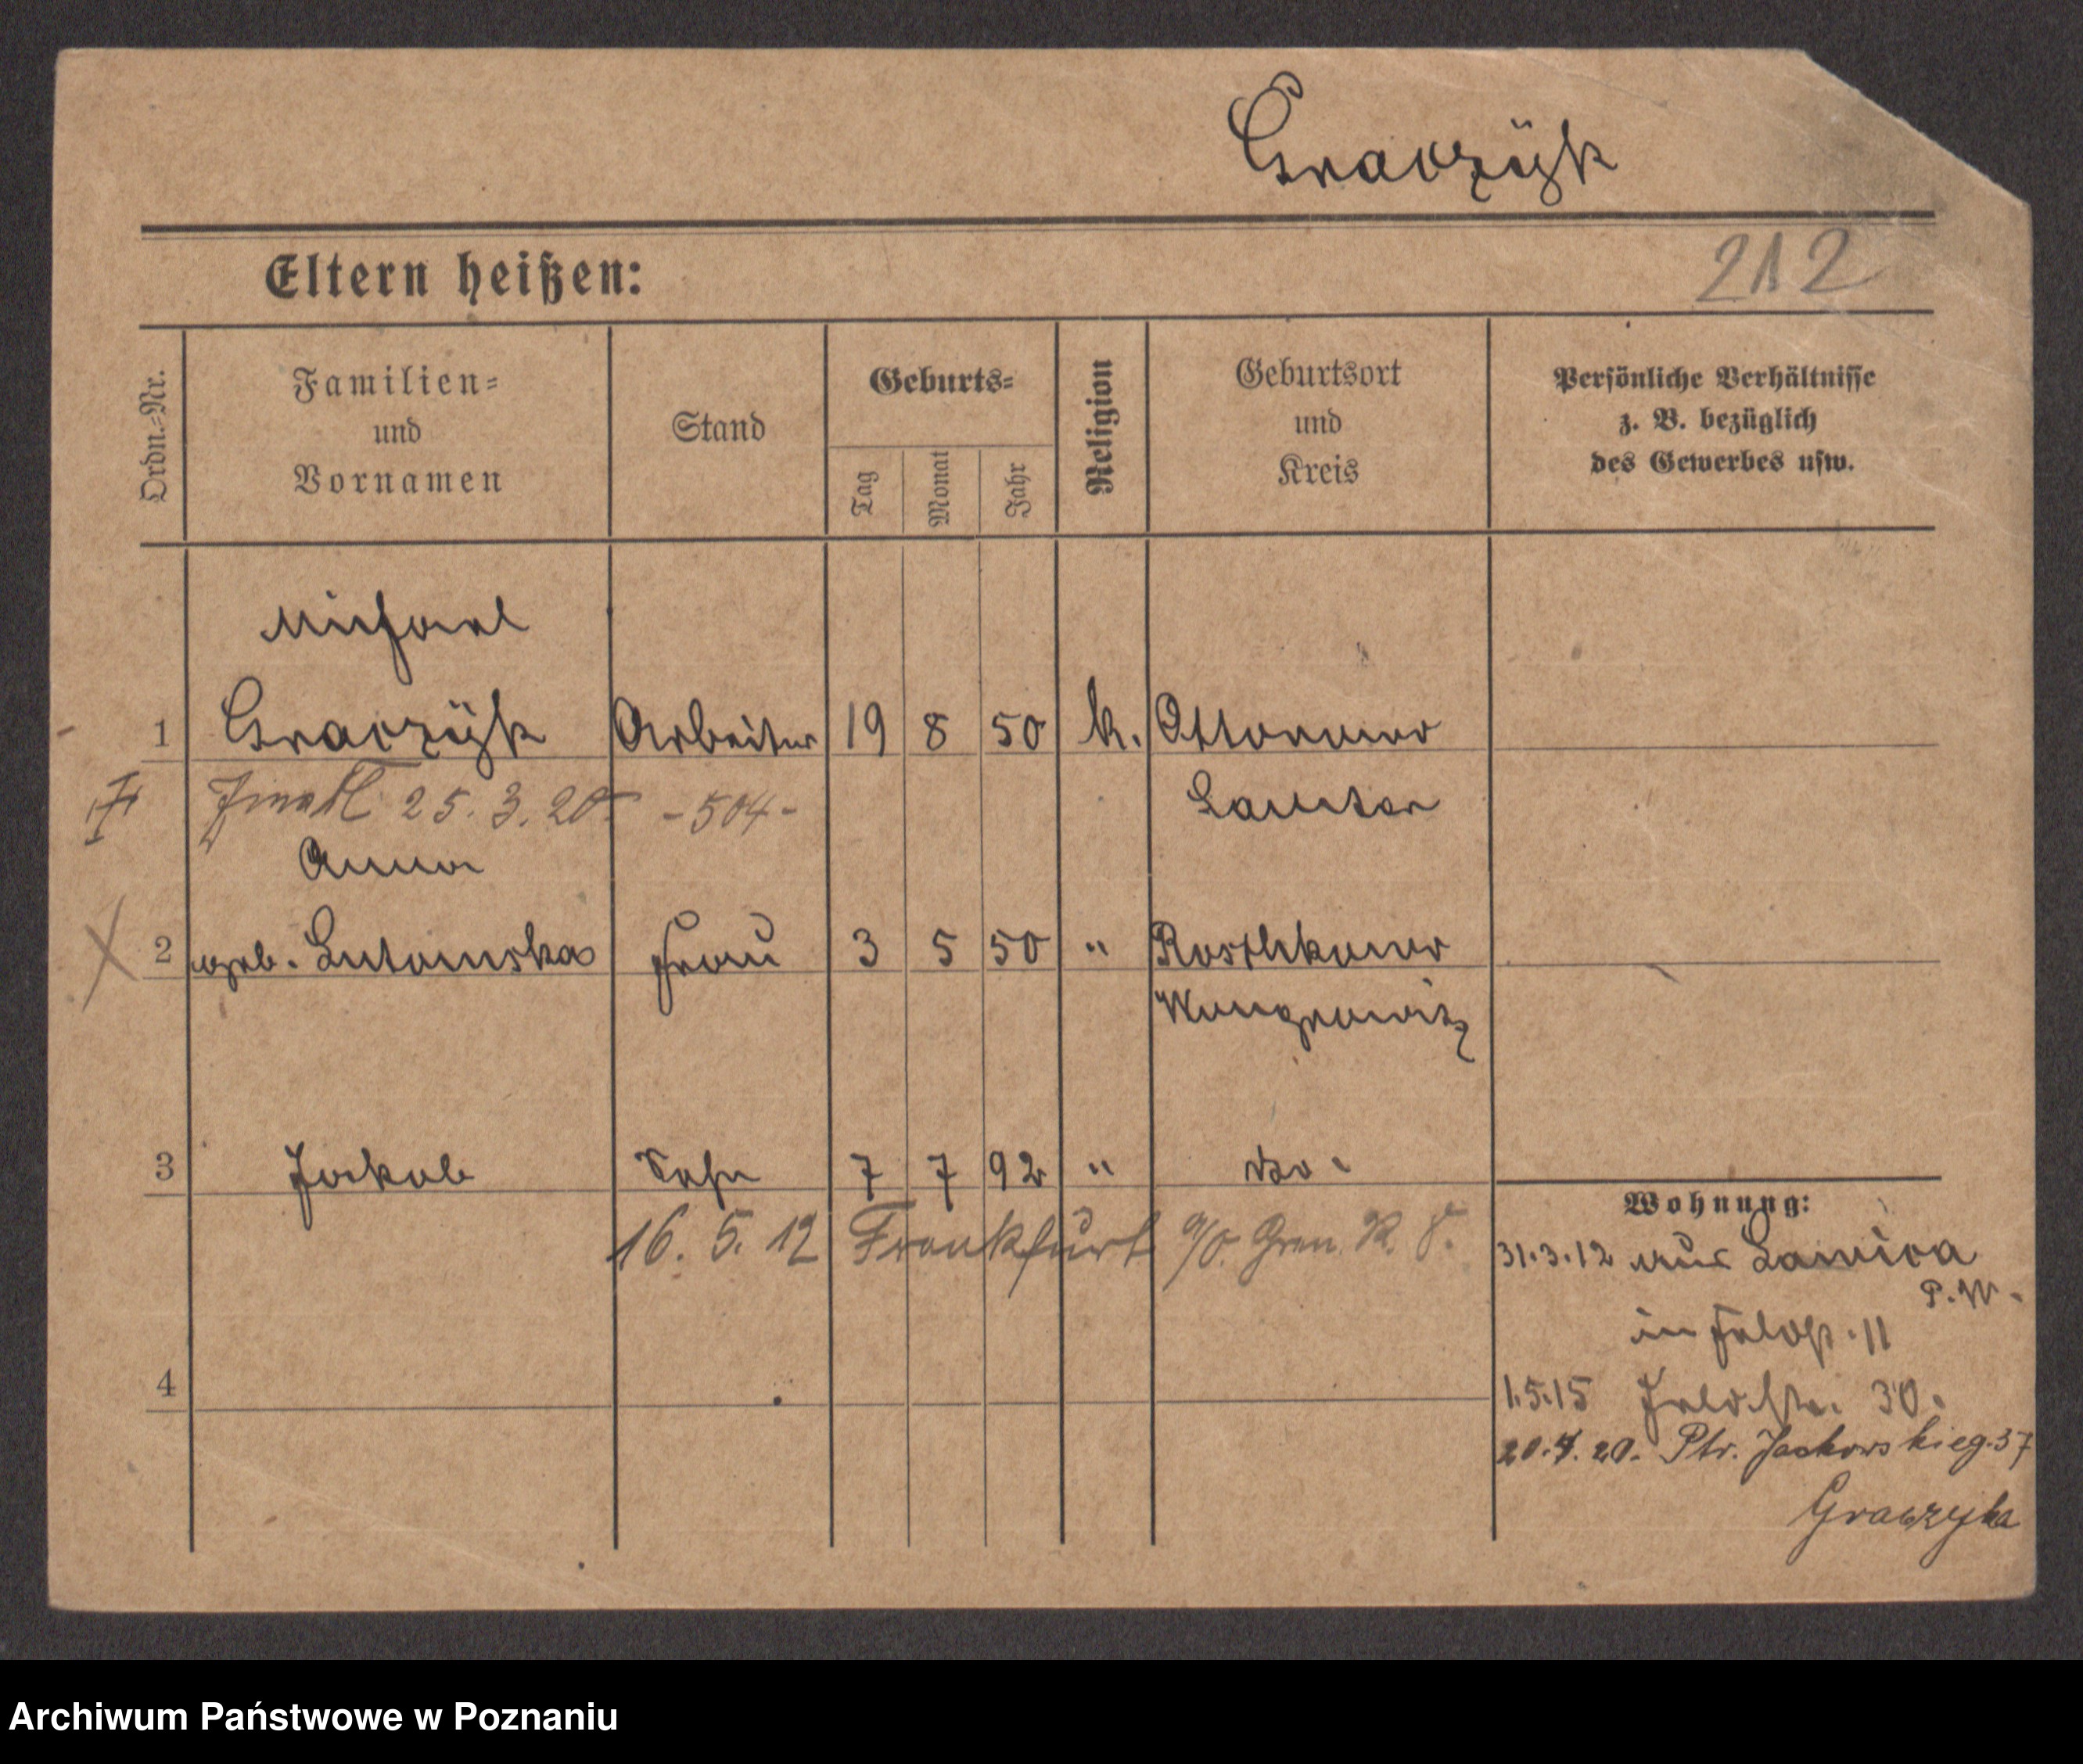 Graczÿk
Eltern heißen:
212
Ordn.-Nr.
Familien-
und
Vornamen
Stand
Geburts-
Tag
Monat
Jahr
Religion
Geburtsort
und
Kreis
Persönliche Verhältnisse
z. B. bezüglich
des Gewerbes usw.
Michael
1 Graczÿk Arbeiter 19 8 50 k. Ottorowo
25. 3. 20 -504- Samter
Anna
2 geb. Lutomska Frau 3 5 50 " Roschkowo
Wongrowitz
3 Jakob Sohn 7 7 92 " do.
16. 5. 12 Frankfurt a/O. Gren. R. 8.
4
Wohnung:
31.3.12 aus Lawica
P.W.
in Feldp. 11
1.5.15 Feldstr. 30.
20.4.20. Ptr. Jackowskieg. 37
Graczyka
Archiwum Państwowe w Poznaniu